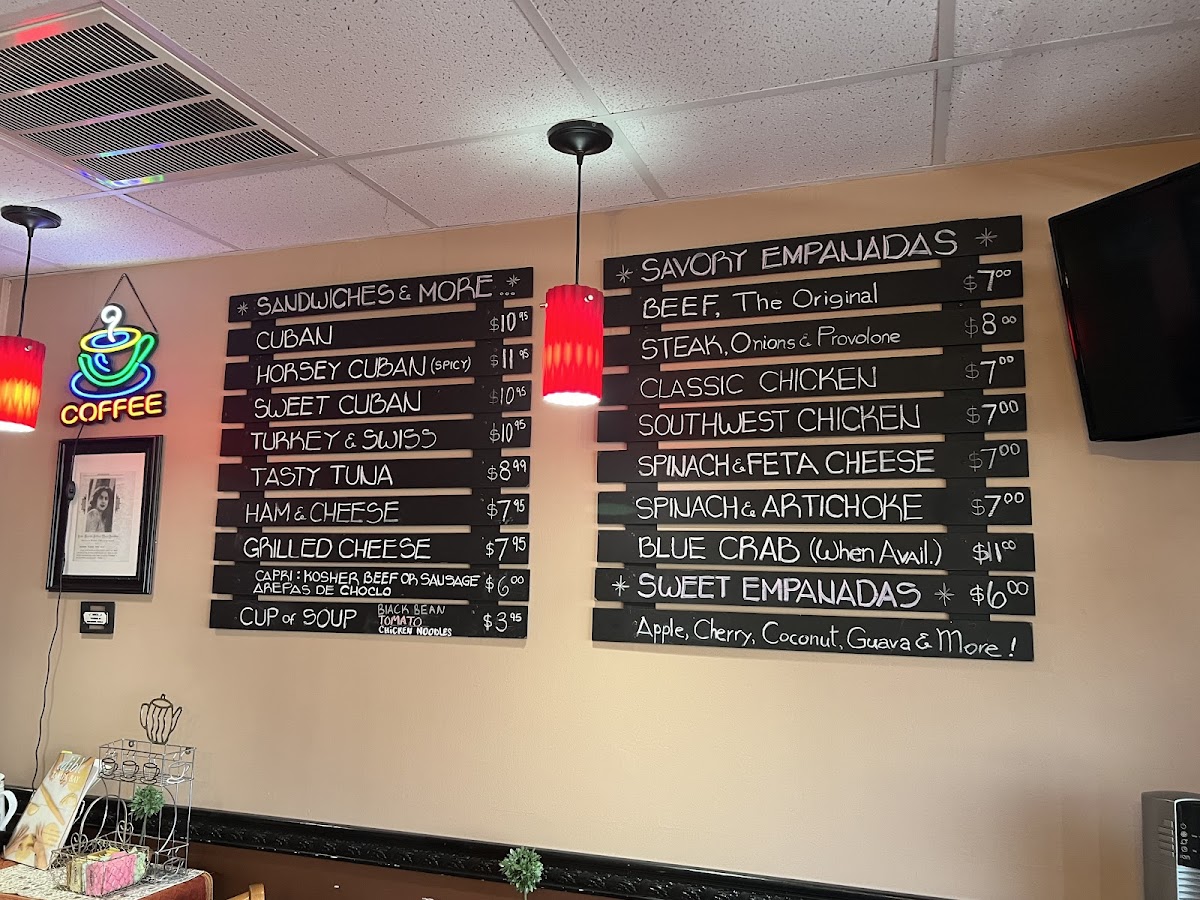 COFFEE
* SANDWICHES & MORE... *
CUBAN $10.95
HORSEY CUBAN (SPICY) $11.95
SWEET CUBAN $10.95
TURKEY & SWISS $10.95
TASTY TUNA $8.99
HAM & CHEESE $7.95
GRILLED CHEESE $7.95
CAPRI: KOSHER BEEF OR SAUSAGE $6.00
AREPAS DE CHOCLO
CUP of SOUP BLACK BEAN $3.95
TOMATO
CHICKEN NOODLES
* SAVORY EMPANADAS *
BEEF, The Original $7.00
STEAK, Onions & Provolone $8.00
CLASSIC CHICKEN $7.00
SOUTHWEST CHICKEN $7.00
SPINACH & FETA CHEESE $7.00
SPINACH & ARTICHOKE $7.00
BLUE CRAB (When Avail.) $11.00
* SWEET EMPANADAS * $6.00
Apple, Cherry, Coconut, Guava & More!